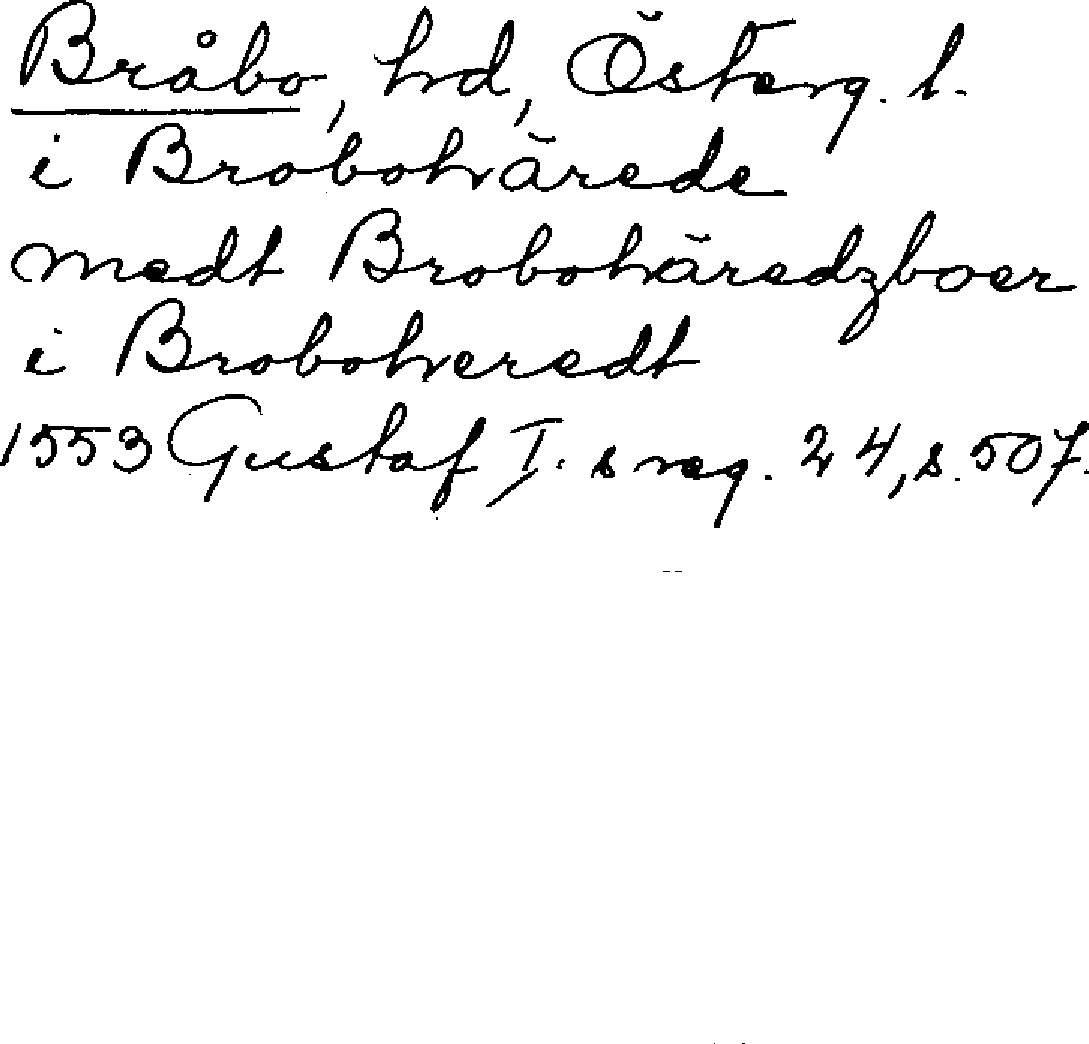 Bråbo, hd, Österg. l.
i Brobohärede
medt Brobohäredzboer
i Broboheredt
1553 Gustaf I. s reg. 24, s. 507.